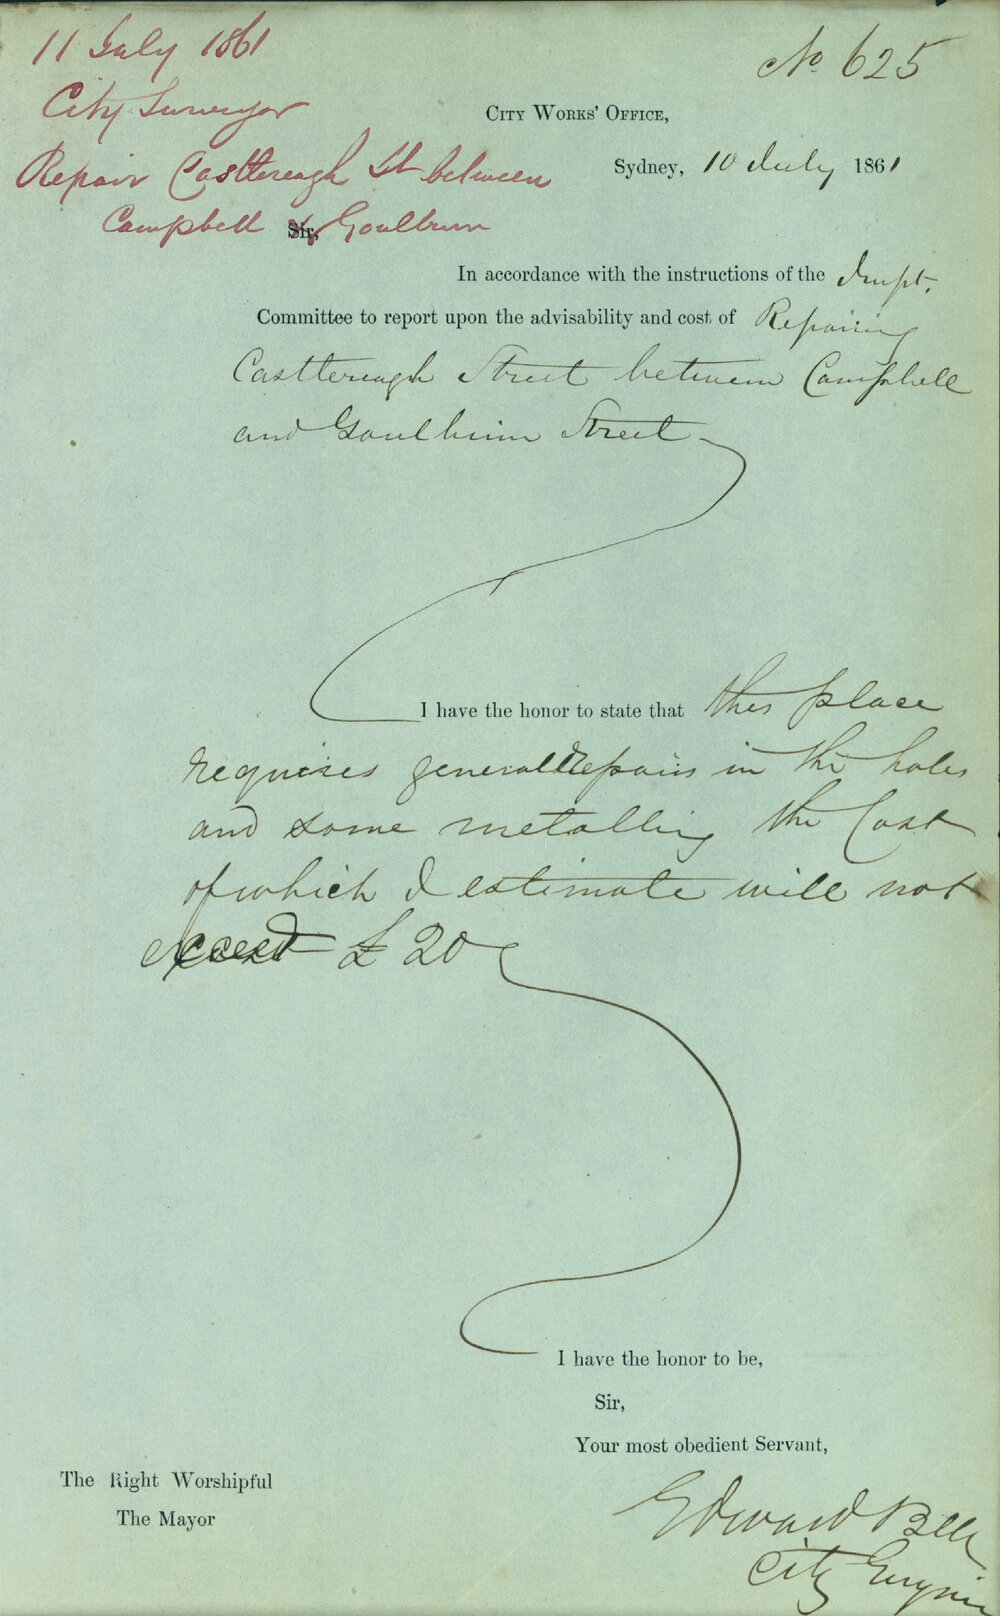 11 July 1861
City Surveyor
Repair Castlereagh St between
Campbell & Goulburn
No. 625
City Works' Office,
Sydney, 10 July 1861
Sir,
In accordance with the instructions of the Impt.
Committee to report upon the advisability and cost of Repairing
Castlereagh Street between Campbell
and Goulburn Street
I have the honor to state that this place
requires general Repairs in the holes
and some metalling the Cost
of which I estimate will not
exceed £20
I have the honor to be,
Sir,
Your most obedient Servant,
The Right Worshipful
The Mayor
Edward Bell
City Engineer